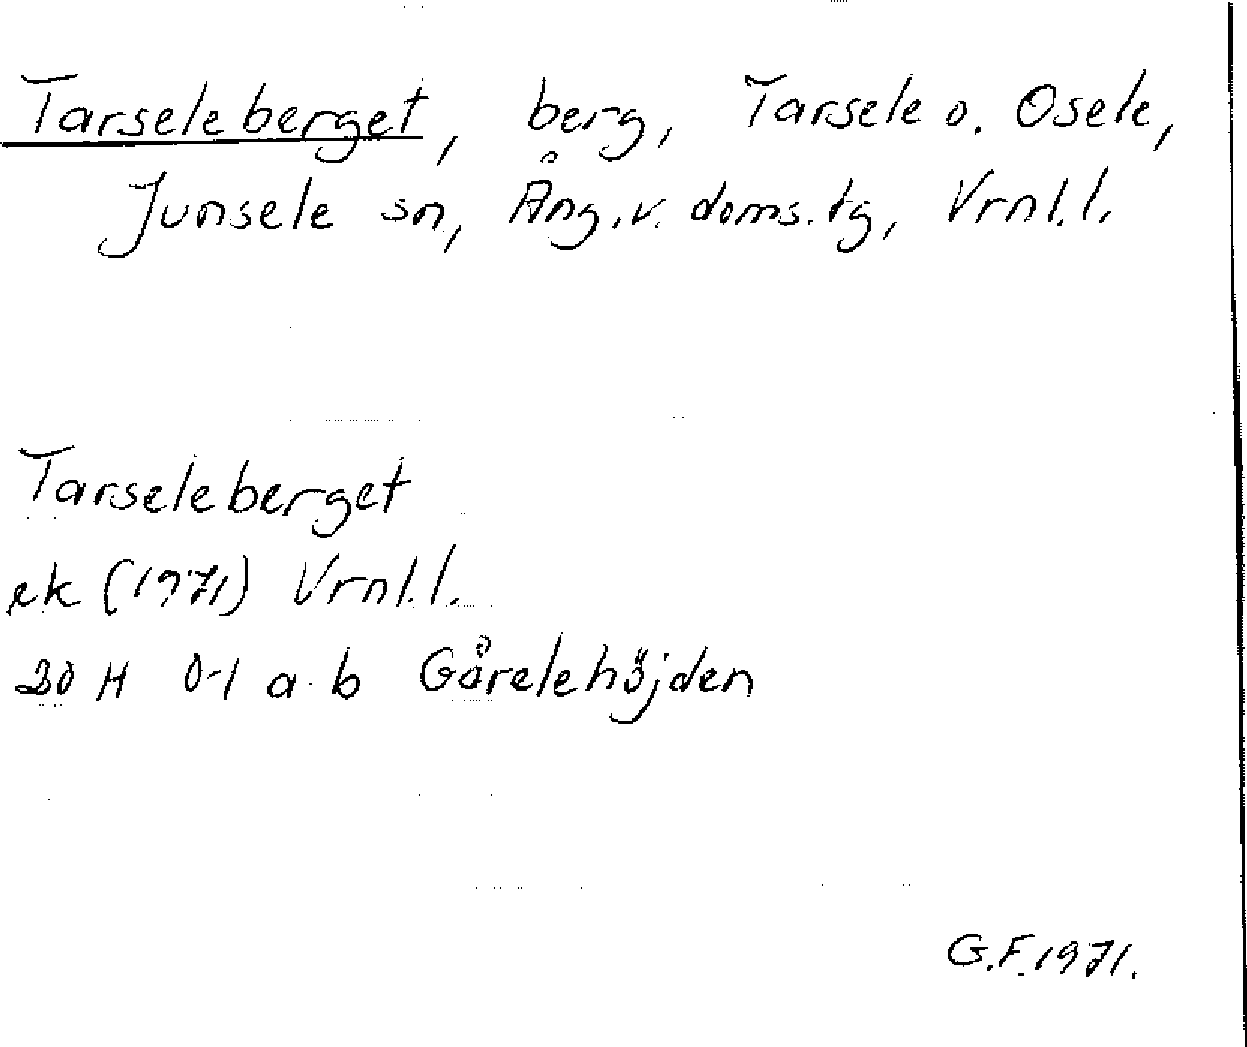 Tarseleberget, berg, Tarsele o. Osele,
Junsele sn, Ång.v. doms.tg, Vrnl.l.
Tarseleberget
ek (1971) Vrnl.l.
20 H 0-1 a-b Gårelehöjden
G.F. 1971.